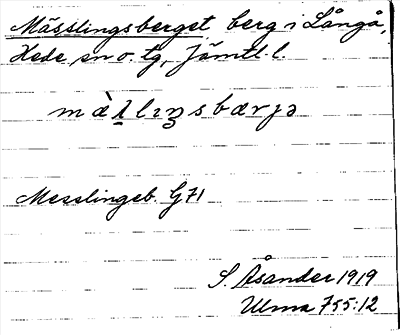 Mässlingsberget, berg i Långå,
Hede sn o. tg, Jämtl. l.
Messlingeb. G71
S. Åsander 1919
Ulma 755:12